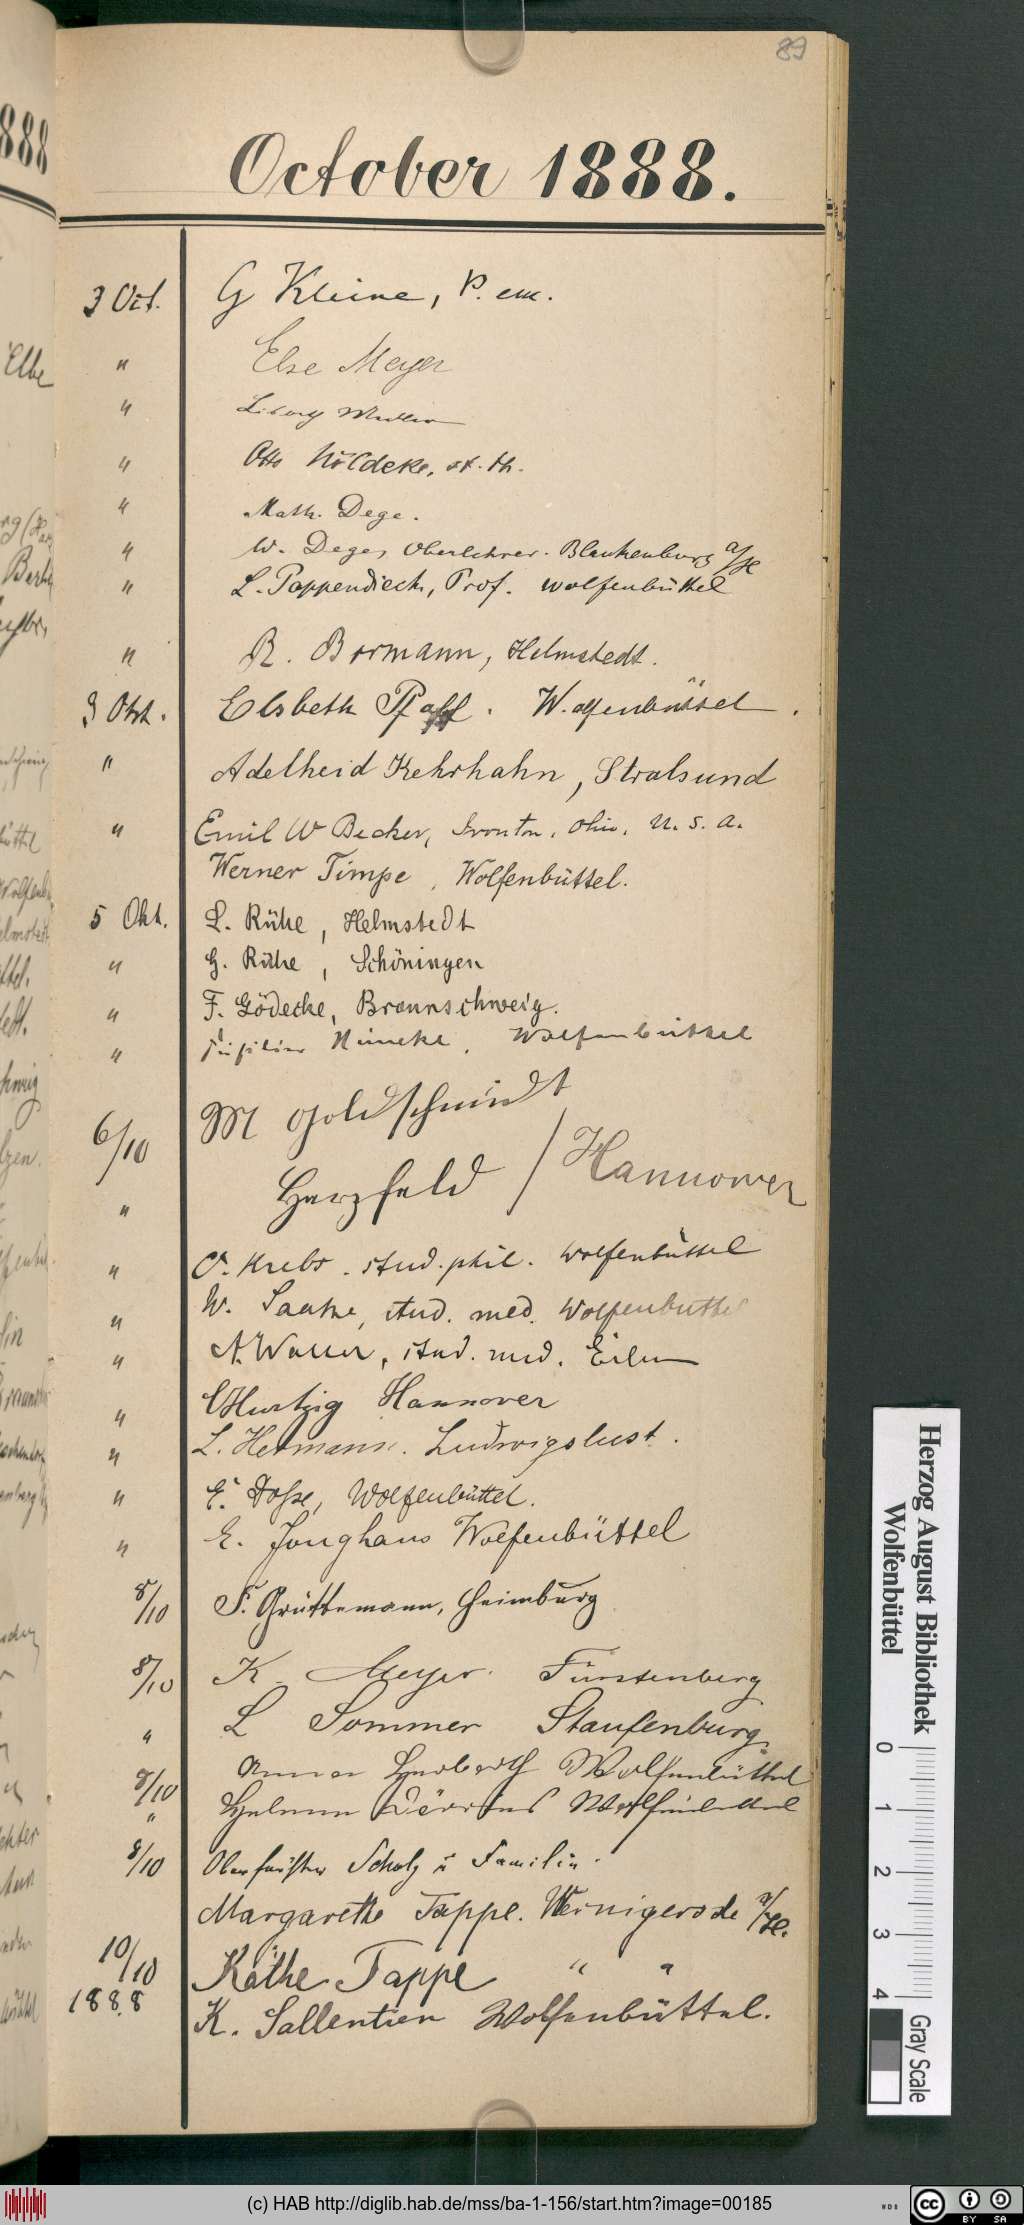 89
888
October 1888.
3 Oct. G Kleine, P. em.
Elbe
" Else Meyer
" Müller
" Otto Nöldeke, st. th.
" Math. Dege.
" W. Dege, Oberlehrer. Blankenburg a/H
" L. Pappendieck, Prof. Wolfenbüttel
" R. Bormann, Helmstedt.
3 Okt. Elsbeth Pfaff. Wolfenbüttel.
" Adelheid Kehrhahn, Stralsund
" Emil W Becker, Ironton, Ohio, U. S. A.
Werner Timpe, Wolfenbüttel.
5 Okt. L. Rühe, Helmstedt
" G. Rühe, Schöningen
" F. Gödecke, Braunschweig.
" Füsilier Wolfenbüttel
6/10 M Goldschmidt
" Herzfeld / Hannover
" O. Krebs. stud. phil. Wolfenbüttel
" W. Saake, stud. med. Wolfenbüttel
" A. stud. med.
" Hurtzig Hannover
" L. Hermann. Ludwigslust.
" E. Dosse, Wolfenbüttel.
" E. Jonghaus Wolfenbüttel
8/10 F. Grüttemann, Heimburg
8/10 K. Meyer. Fürstenberg
" L Sommer Staufenburg.
9/10 Anna Wolfenbüttel
" Helene Wolfenbüttel
9/10 Oberförster Scholz u Familie.
Margarethe Tappe. Wernigerode a/H.
10/10 Käthe Tappe " "
1888 K. Sallentien Wolfenbüttel.
Herzog August Bibliothek
Wolfenbüttel
0 1 2 3 4
Gray Scale
(c) HAB http://diglib.hab.de/mss/ba-1-156/start.htm?image=00185
WDB
cc BY SA